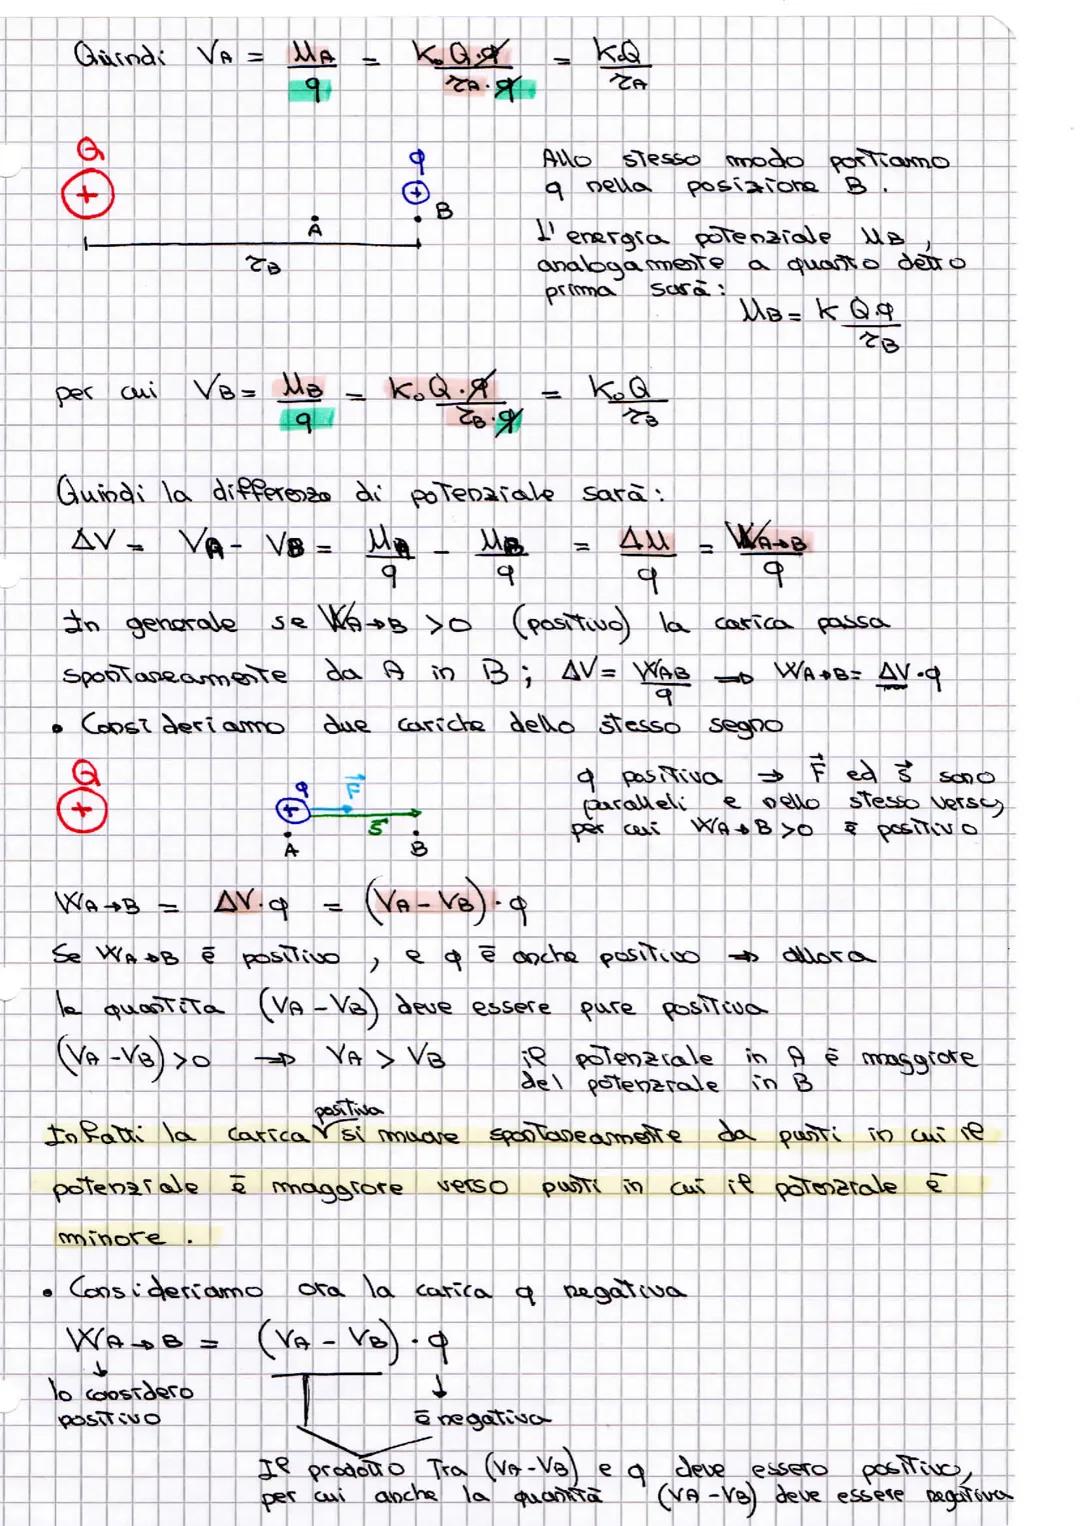 Quindi VA = UA/q = K₀Q·q/rA·q = K₀Q/rA
Q
+
q
+
A
B
rB
Allo stesso modo portiamo
q nella posizione B.
L'energia potenziale UB,
analogamente a quanto detto
prima sarà:
UB = K Q·q/rB
per cui VB = UB/q = K₀Q·q/rB·q = K₀Q/rB
Quindi la differenza di potenziale sarà:
ΔV = VA - VB = UA/q - UB/q = ΔU/q = WA→B/q
In generale se WA→B >0 (positivo) la carica passa
spontaneamente da A in B; ΔV = WAB/q ⇒ WA→B = ΔV·q
• Consideriamo due cariche dello stesso segno
Q
+
q
+
F⃗
s⃗
A
B
q positiva ⇒ F⃗ ed s⃗ sono
paralleli e nello stesso verso,
per cui WA→B >0 è positivo
WA→B = ΔV·q = (VA - VB)·q
Se WA→B è positivo, e q è anche positivo ⇒ allora
la quantità (VA - VB) deve essere pure positiva
(VA - VB) >0 ⇒ VA > VB il potenziale in A è maggiore
del potenziale in B
Infatti la carica positiva si muove spontaneamente da punti in cui il
potenziale è maggiore verso punti in cui il potenziale è
minore.
• Consideriamo ora la carica q negativa
WA→B = (VA - VB)·q
↓ ↓
lo considero
positivo
è negativa
Il prodotto tra (VA-VB) e q deve essero positivo,
per cui anche la quantità (VA-VB) deve essere negativa